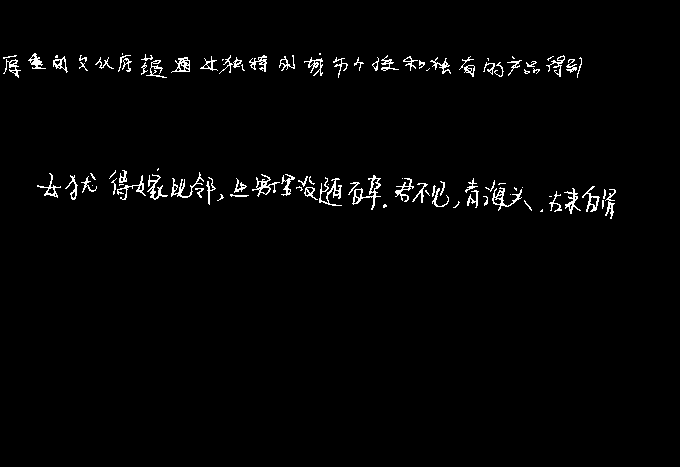 厚重的文化底蕴通过独特的城市个性和独有的产品得到
女犹得嫁比邻,生男埋没随百草.君不见,青海头,古来白骨